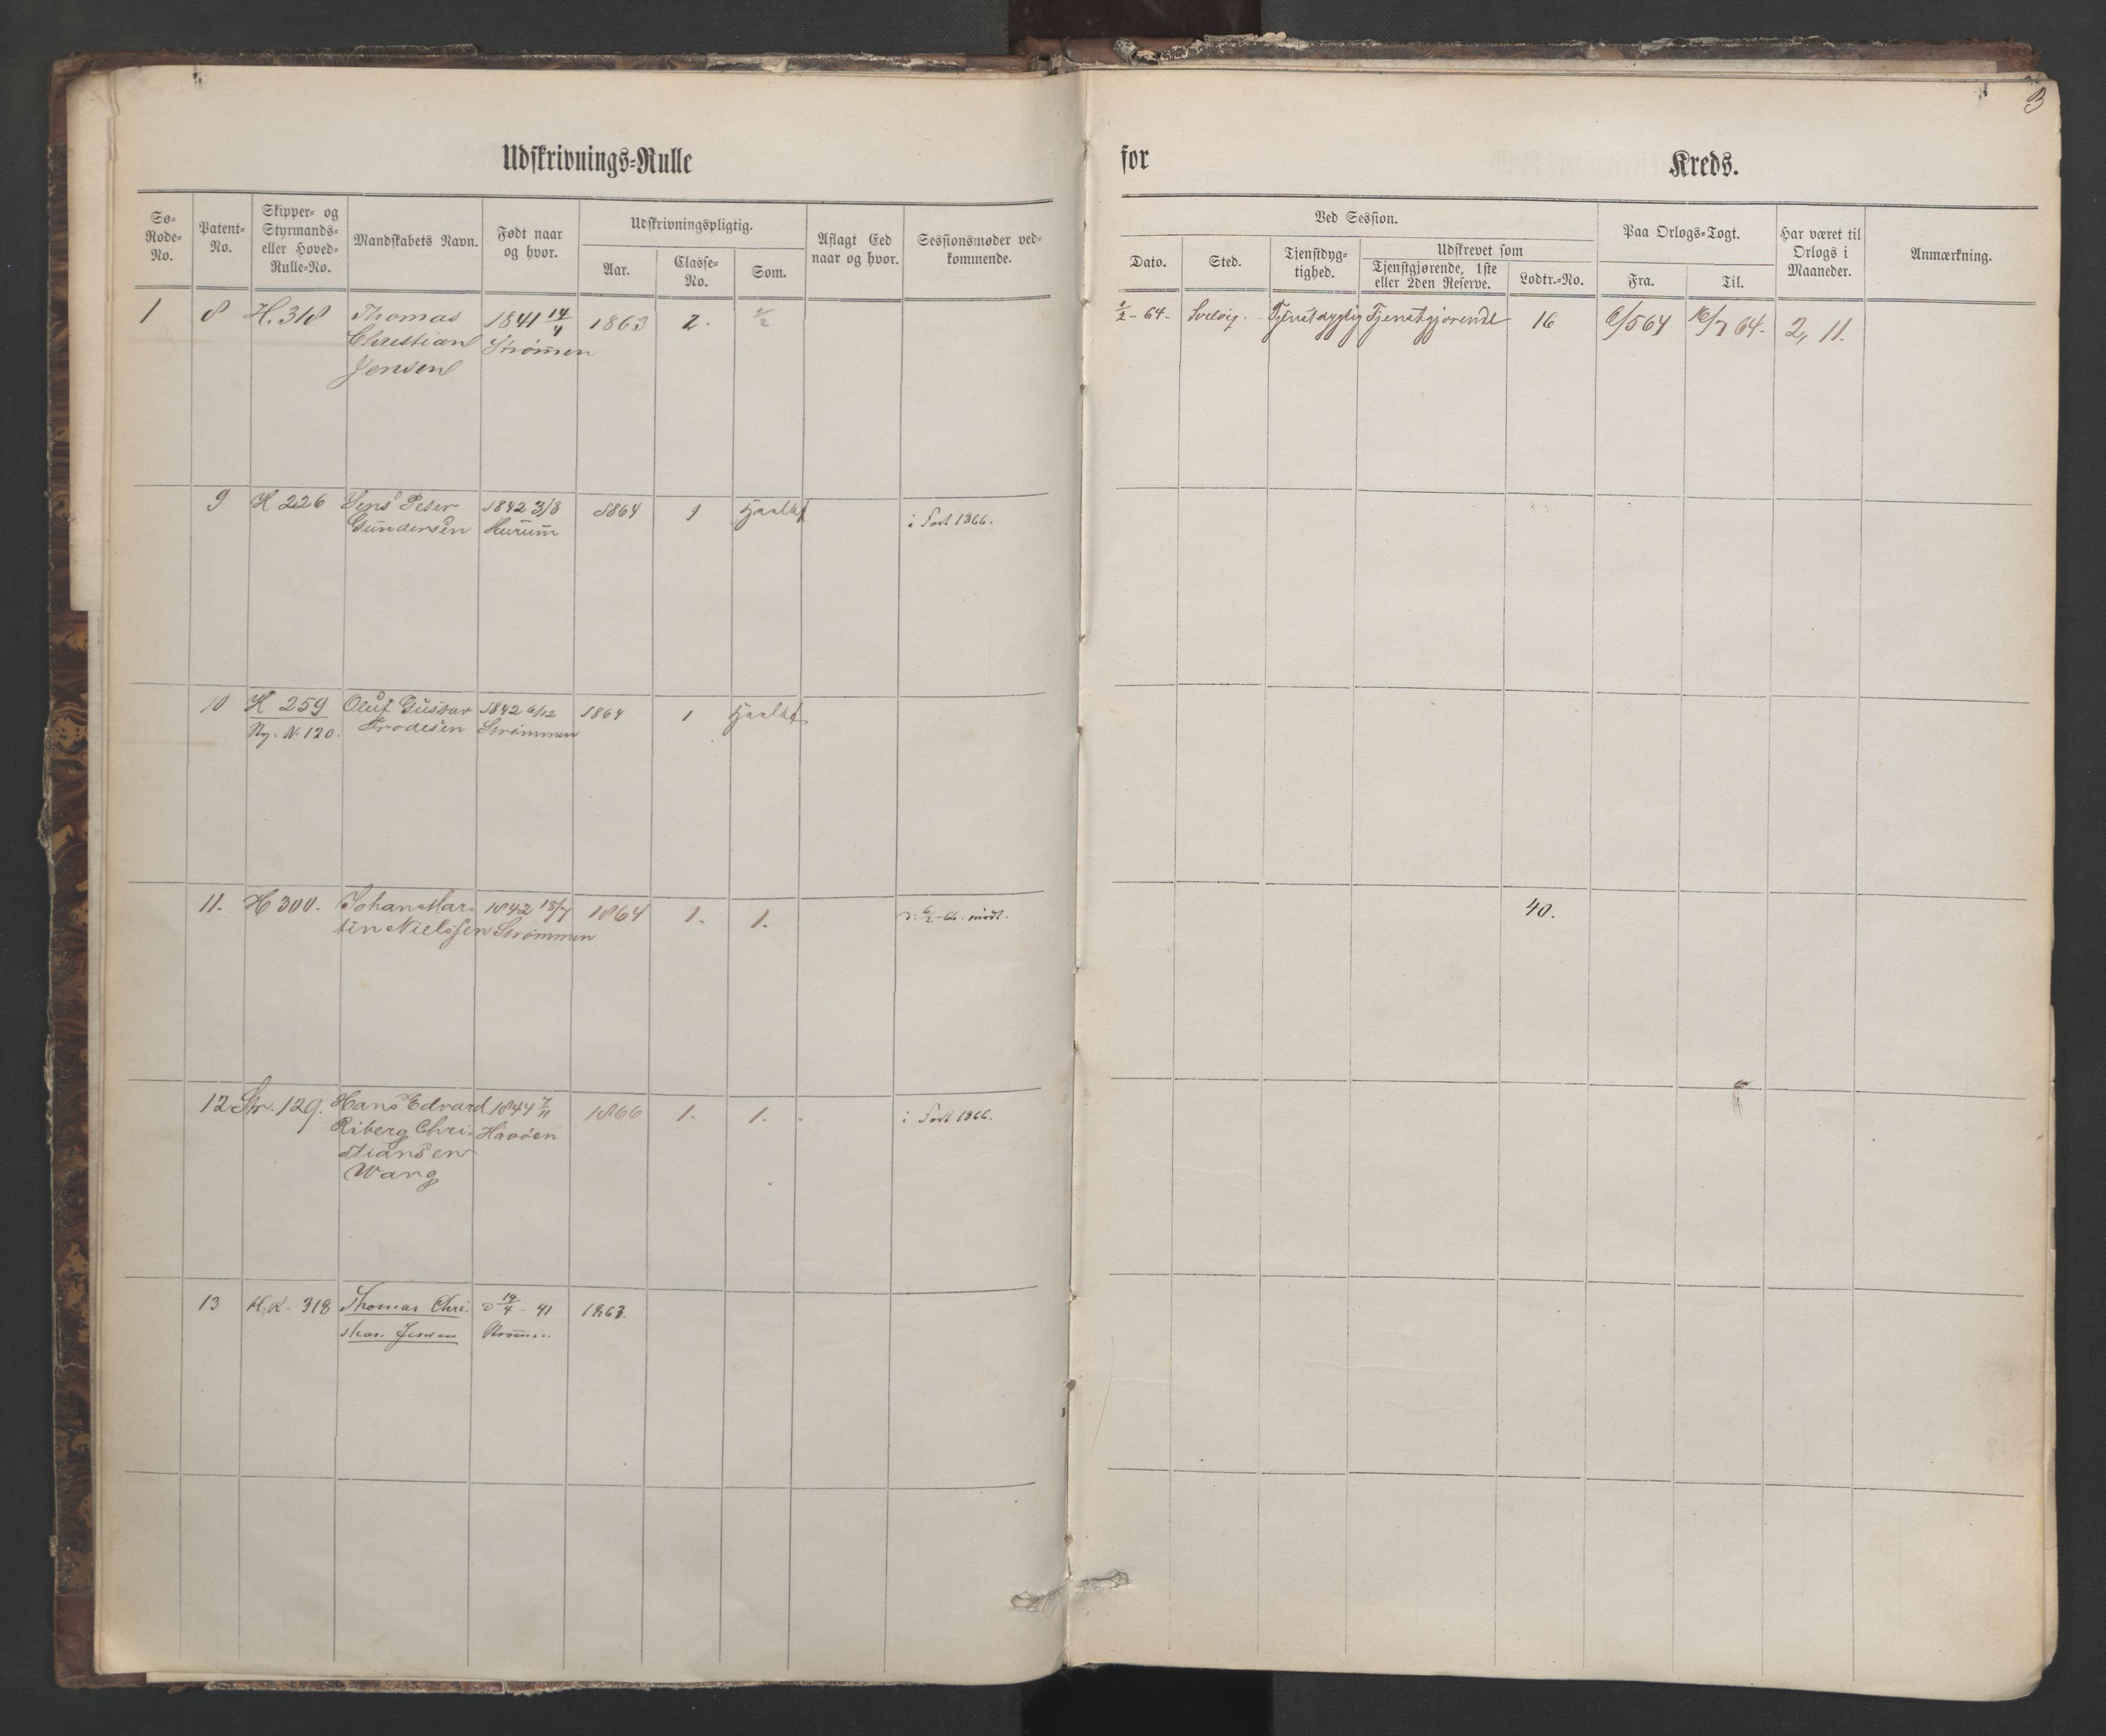 3
Udskrivnings-Rulle for Kreds.
Sø-Rode-No.
Patent-No.
Skipper- og Styrmands- eller Hoved-Rulle-No.
Mandskabets Navn.
Født naar og hvor.
Udskrivningspligtig.
Aar.
Classe-No.
Som.
Aflagt Eed naar og hvor.
Sessionsmøder vedkommende.
Ved Session.
Dato.
Sted.
Tjenstdyg-tighed.
Udskrevet som
Tjenstgjørende, 1ste eller 2den Reserve.
Lodtr.-No.
Paa Orlogs-Togt.
Fra.
Til.
Har været til Orlogs i Maaneder.
Anmærkning.
1 8 H. 318 Thomas 1841 14/4 1863 2. 1/2 - 64 - Svelvig. Tjenstdygtig Tjenstgjørende 16 6/5 64 16/7 64 - 2, 11.
Christian Strømen
Jensen
9 H 226 Jens Peter 1842 3/8 1864 1 i Fart 1866.
Gundersen Hurum
10 H 259 Oluf Gustav 1842 6/12 1864 1
Ny. N. 120. Frodesen Strømmen
11. H 300. Johan Mar- 1842 15/7 1864 1. 1. 6/2 - 66 mødt. 40.
tin Nielssen Strømmen
12 Str. 129. Hans Edvard 1844 7/11 1866 1. 1. i Fart 1866.
Riberg Chri- Havøen
stiansen
Wang
13 H.K. 318 Thomas Chri- 14/4 - 41 1863.
stian Jensen Strømen